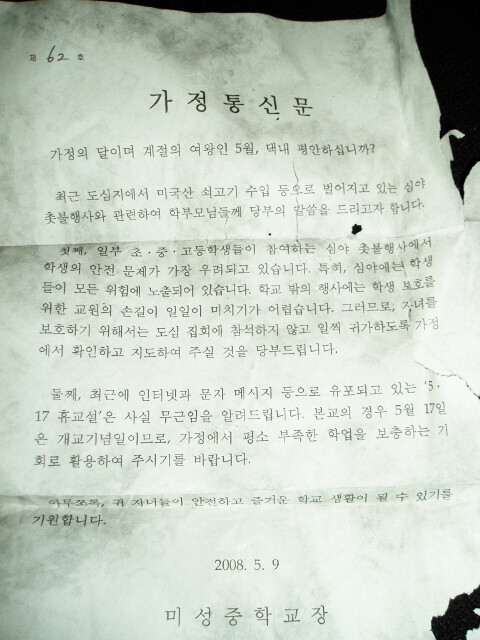 제 62 호
가 정 통 신 문
가정의 달이며 계절의 여왕인 5월, 댁내 평안하십니까?
최근 도심지에서 미국산 쇠고기 수입 등으로 벌어지고 있는 심야
촛불행사와 관련하여 학부모님들께 당부의 말씀을 드리고자 합니다.
첫째, 일부 초·중·고등학생들이 참여하는 심야 촛불행사에서
학생의 안전 문제가 가장 우려되고 있습니다. 특히, 심야에는 학생
들이 모든 위험에 노출되어 있습니다. 학교 밖의 행사에는 학생 보호를
위한 교원의 손길이 일일이 미치기가 어렵습니다. 그러므로, 자녀를
보호하기 위해서는 도심 집회에 참석하지 않고 일찍 귀가하도록 가정
에서 확인하고 지도하여 주실 것을 당부드립니다.
둘째, 최근에 인터넷과 문자 메시지 등으로 유포되고 있는 '5·
17 휴교설'은 사실 무근임을 알려드립니다. 본교의 경우 5월 17일
은 개교기념일이므로, 가정에서 평소 부족한 학업을 보충하는 기
회로 활용하여 주시기를 바랍니다.
아무쪼록, 귀 자녀들이 안전하고 즐거운 학교 생활이 될 수 있기를
기원합니다.
2008. 5. 9
미 성 중 학 교 장